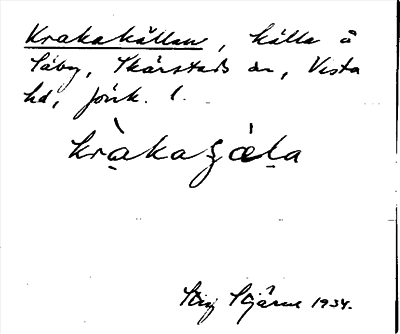 Krakakällan, källa å
Säby, Skärstads sn, Vista
hd, Jönk. l.
kràkaʒæ̀ḷa
Stig Stjärne 1934.